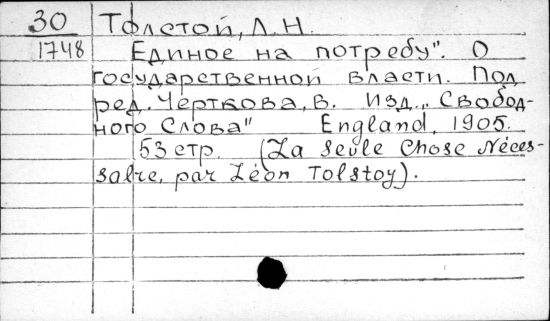 30 Толстой, Л.Н.
1748 Единое на потребу". О
государственной власти. Под
ред. Черткова, В. Изд. „Свобод-
ного Слова" England, 1905.
53 стр. (La seule Chose Néces-
saire, par Léon Tolstoy).